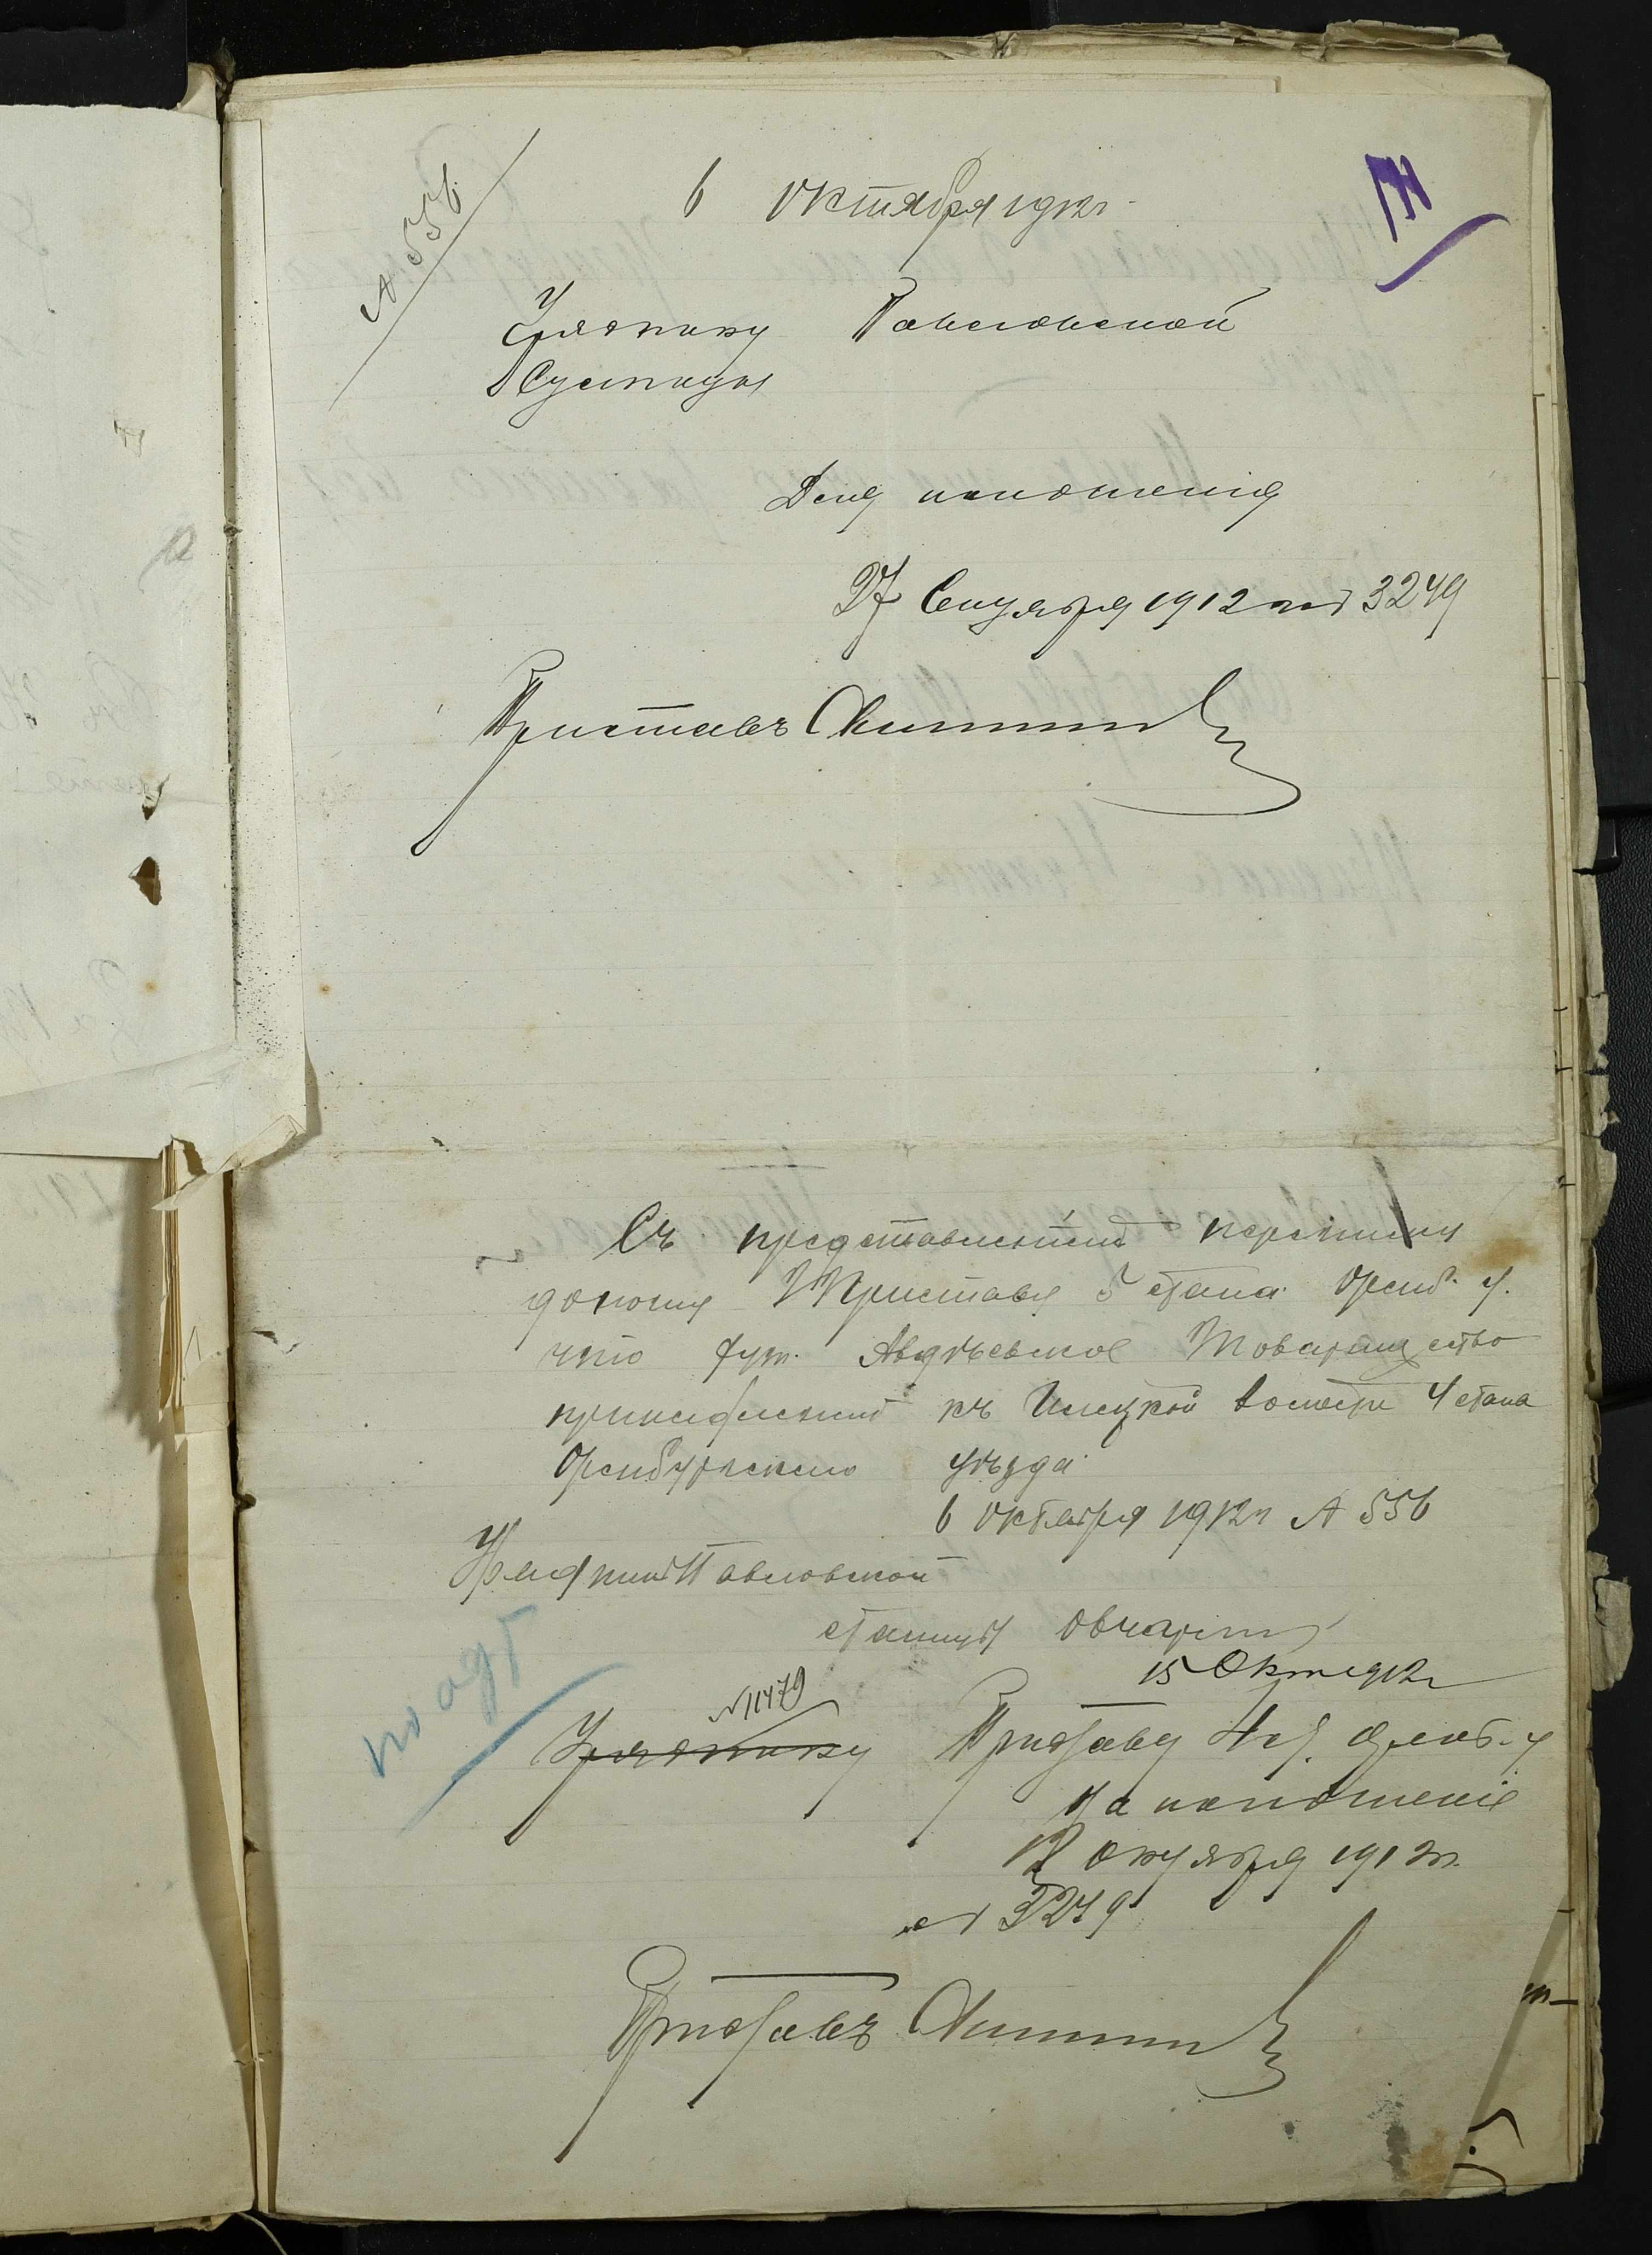 № 556
6 октября 1912 г.
Уряднику Павловской
станицы
Для исполнения
27 Сентября 1912 г. № 3249
Приставъ
Съ представленіемъ переписки
доношу Г Приставу 5 стана Оренб. у.
что хут. Авдѣевское Товарищество
причисленный къ Илецкой волости 4 стана
Оренбургскаго уѣзда
6 октября 1912 г № 556
Урядникъ Павловской
станицы Овчар
15 Окт 1912 г
№ 11479
Уряднику Приставу 4 ст. Оренб. у
на исполненіе
12 октября 1912 г.
№ 3249
Приставъ